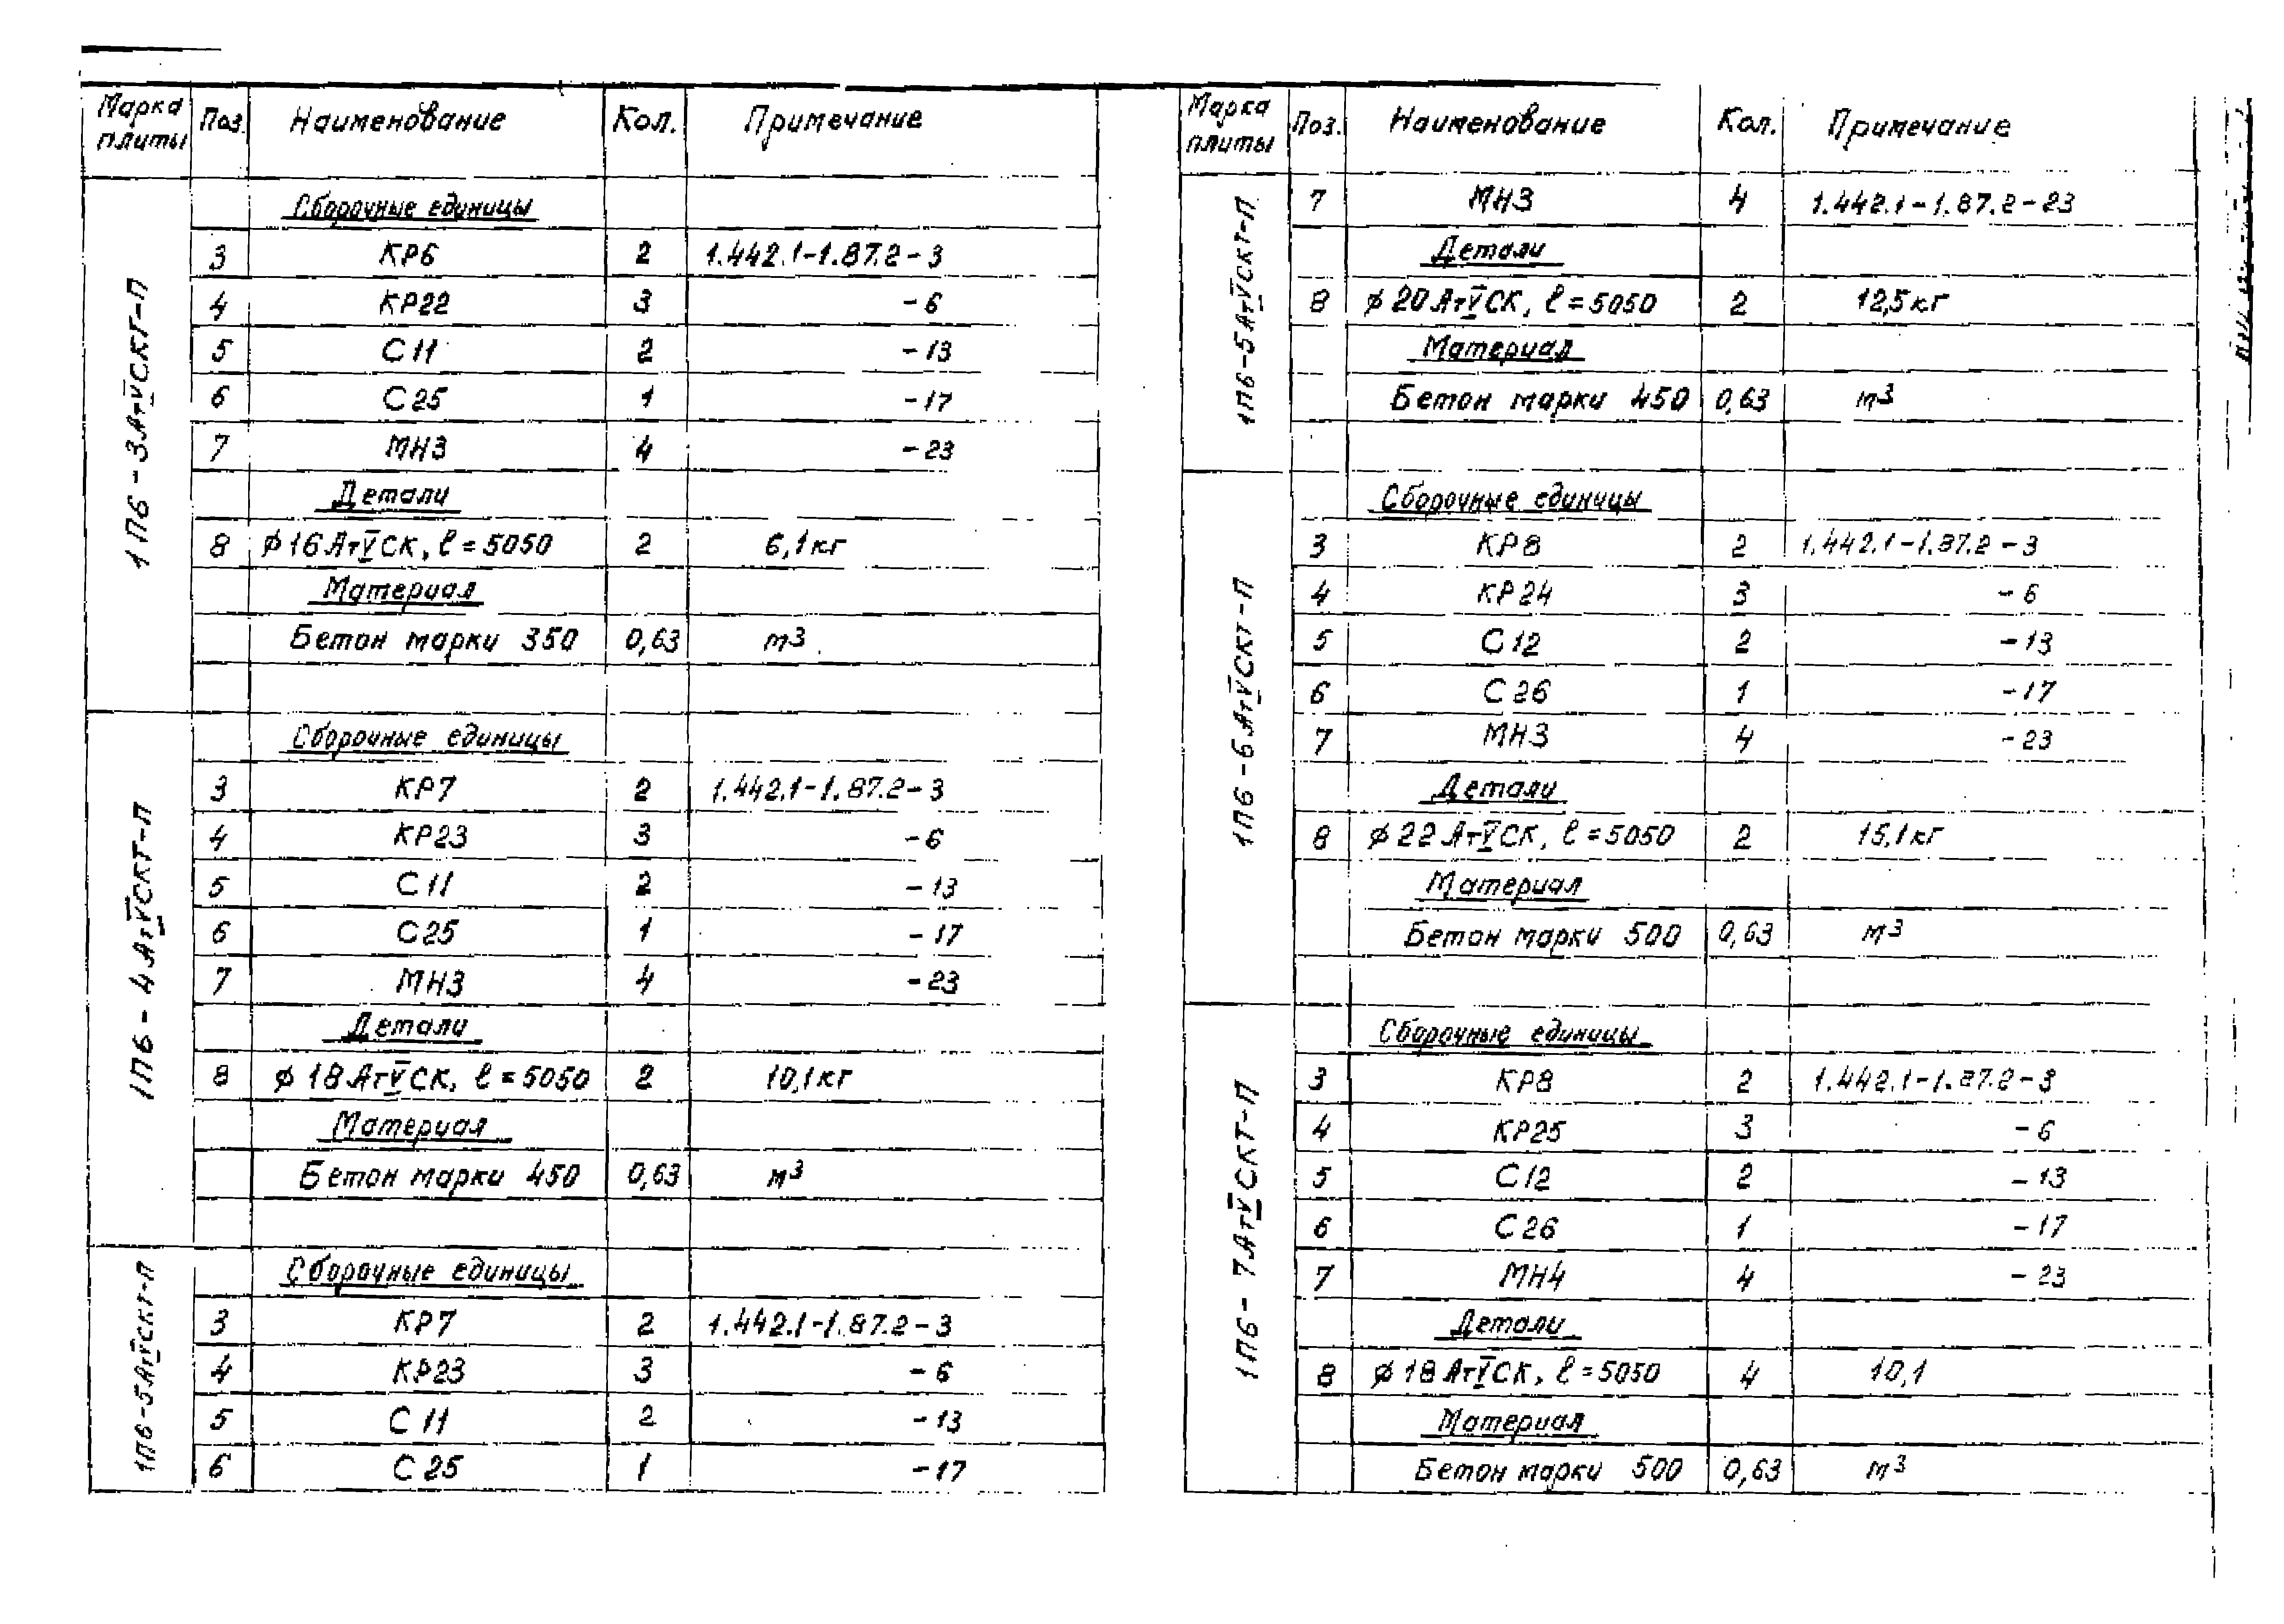 Марка плиты Поз. Наименование Кол. Примечание
1П6-3АтVСКТ-П
Сборочные единицы
3 КР6 2 1.442.1-1.87.2-3
4 КР22 3 -6
5 С11 2 -13
6 С25 1 -17
7 МН3 4 -23
Детали
8 ϕ16АтVСК, ℓ=5050 2 6,1кг
Материал
Бетон марки 350 0,63 м3
1П6-4АтVСКТ-П
Сборочные единицы
3 КР7 2 1.442.1-1.87.2-3
4 КР23 3 -6
5 С11 2 -13
6 С25 1 -17
7 МН3 4 -23
Детали
8 ϕ18АтVСК, ℓ=5050 2 10,1кг
Материал
Бетон марки 450 0,63 м3
1П6-5АтVСКТ-П
Сборочные единицы
3 КР7 2 1.442.1-1.87.2-3
4 КР23 3 -6
5 С11 2 -13
6 С25 1 -17
Марка плиты Поз. Наименование Кол. Примечание
1П6-5АтVСКТ-П
7 МН3 4 1.442.1-1.87.2-23
Детали
8 ϕ20АтVСК, ℓ=5050 2 12,5кг
Материал
Бетон марки 450 0,63 м3
1П6-6АтVСКТ-П
Сборочные единицы
3 КР8 2 1.442.1-1.87.2-3
4 КР24 3 -6
5 С12 2 -13
6 С26 1 -17
7 МН3 4 -23
Детали
8 ϕ22АтVСК, ℓ=5050 2 15,1кг
Материал
Бетон марки 500 0,63 м3
1П6-7АтVСКТ-П
Сборочные единицы
3 КР8 2 1.442.1-1.87.2-3
4 КР25 3 -6
5 С12 2 -13
6 С26 1 -17
7 МН4 4 -23
Детали
8 ϕ18АтVСК, ℓ=5050 4 10,1
Материал
Бетон марки 500 0,63 м3